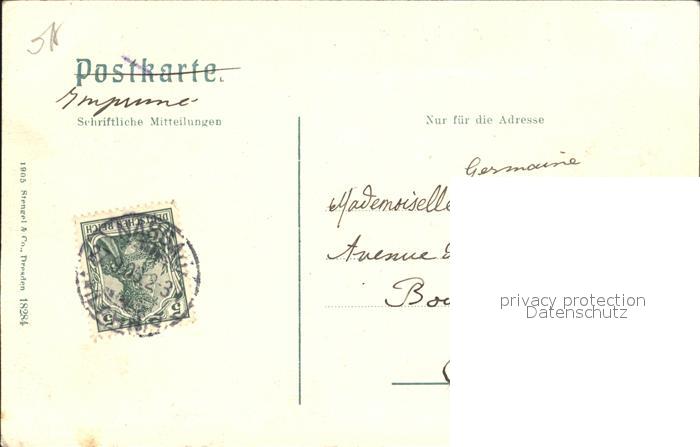 Postkarte.
Imprimé
Schriftliche Mitteilungen
Nur für die Adresse
Germaine
Mademoiselle
Avenue
Bo
1905 Stengel & Co., Dresden 18284
DEUTSCHES REICH
5 5
privacy protection
Datenschutz